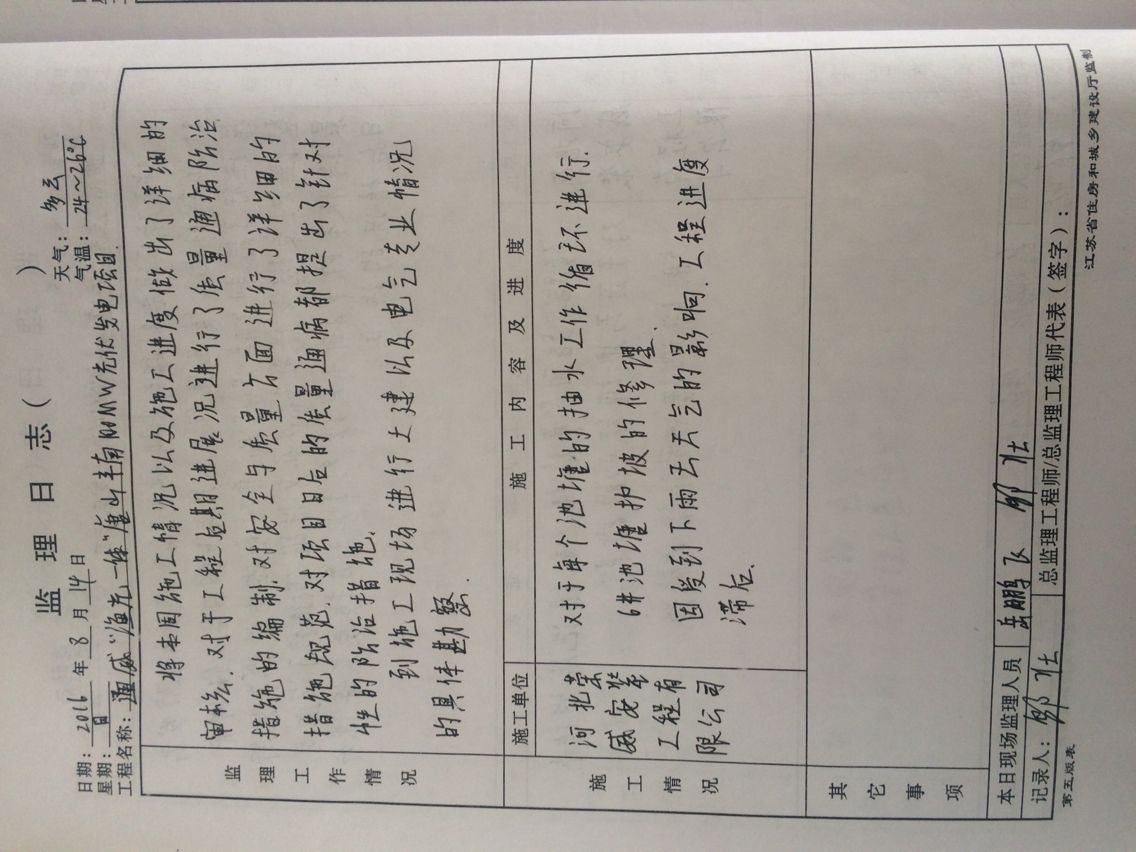 监理日志( )
日期：2016年8月14日 天气：多云
星期：日 气温：24～26℃
工程名称：通威"渔光一体"唐山丰南100MW光伏发电项目.
监理工作情况
将本周施工情况以及施工进度做出了详细的
审核. 对于工程后期进展况进行了质量通病防治
措施的编制. 对安全与质量方面进行了详细的
措施规范. 对项目目台的质量通病都提出了针对
性的防治措施.
到施工现场进行土建以及电气专业情况
的具体勘察.
施工情况
施工单位 施工内容及进度
河北荣
威安装
工程有
限公司
对于每个池塘的抽水工作循环进行.
6#池塘护坡的修理.
因受到下雨天天气的影响. 工程进度
滞后.
其它事项
本日现场监理人员 岳鹏飞 邹仕
记录人：邹仕 总监理工程师/总监理工程师代表(签字)：
第五版表 江苏省住房和城乡建设厅监制